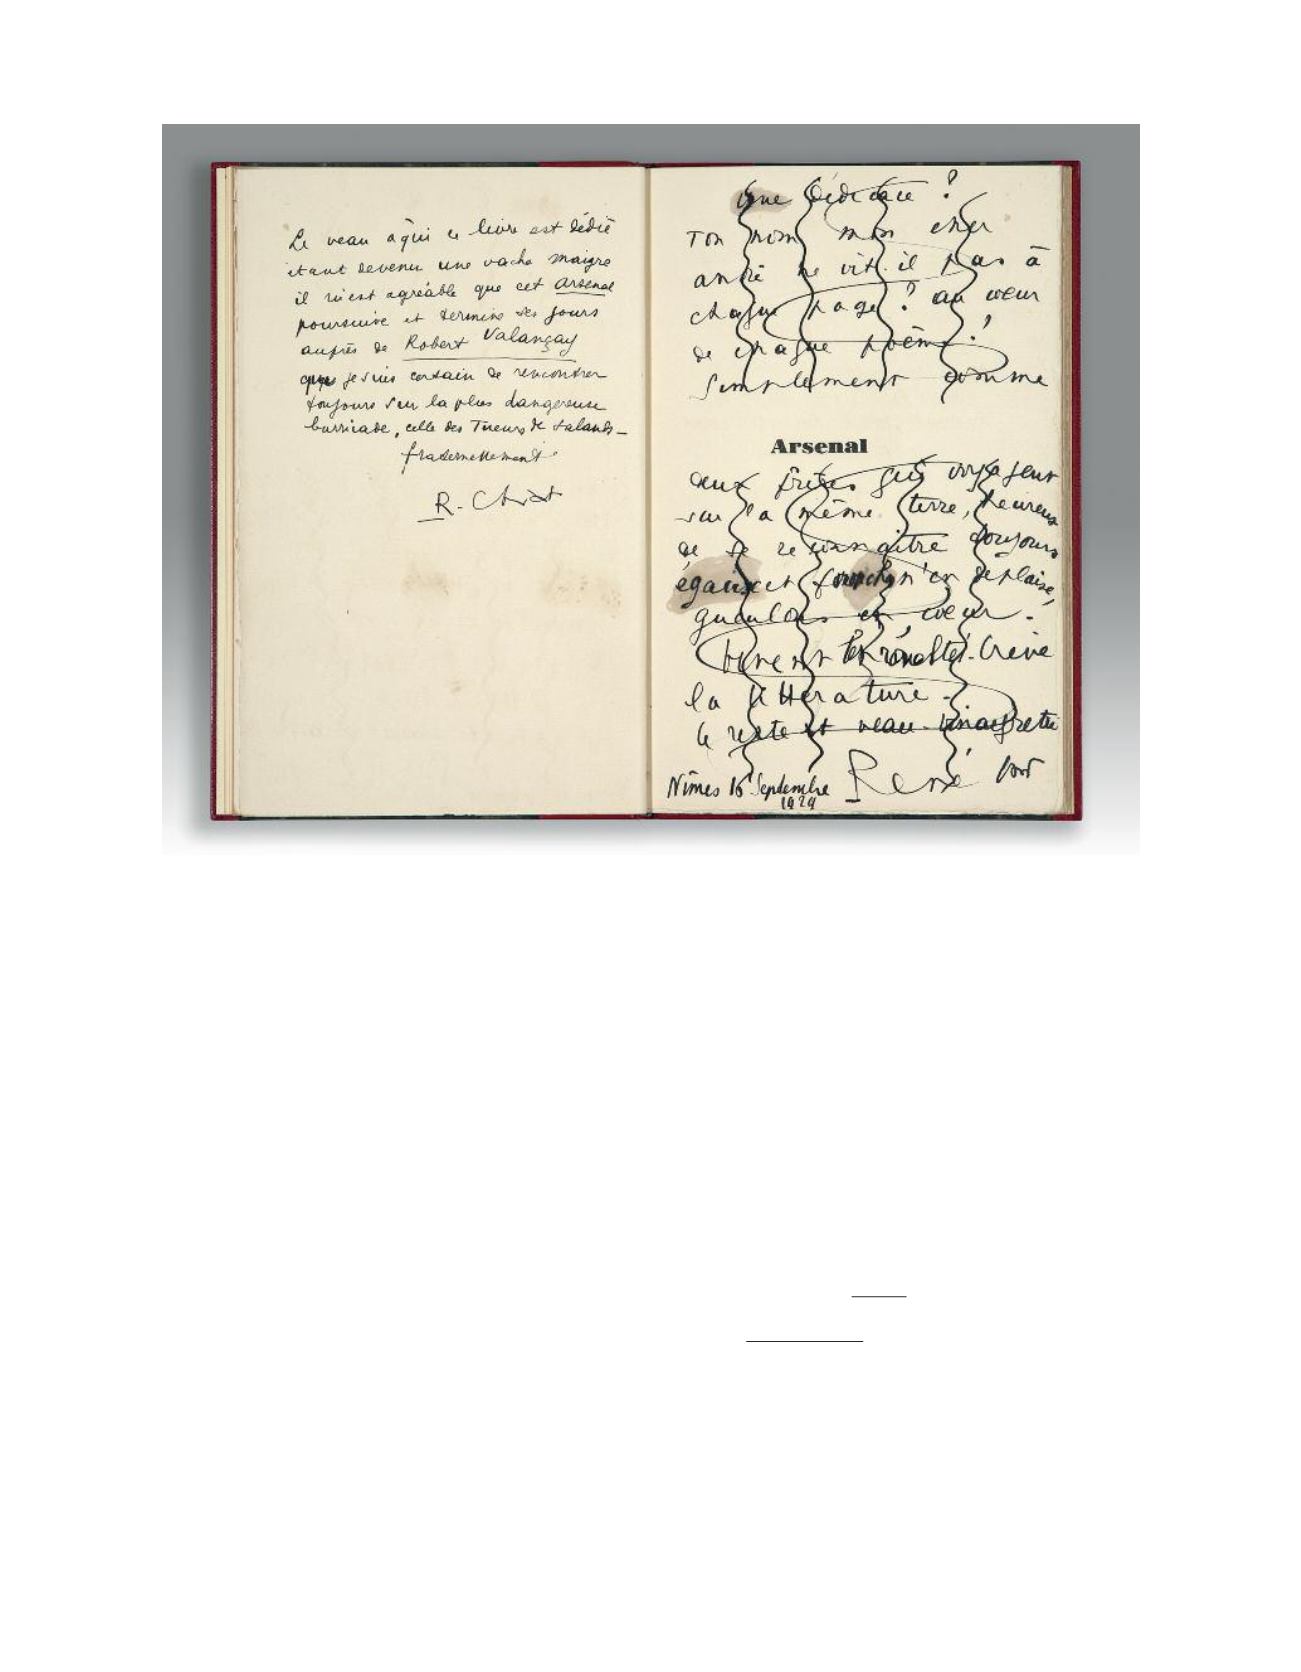 Le veau à qui ce livre est dédié
étant devenu une vache maigre
il m'est agréable que cet Arsenal
poursuive et termine ses jours
auprès de Robert Valançay
que je suis certain de rencontrer
toujours sur la plus dangereuse
barricade, celle des Tueurs de salauds_
fraternellement
R. Char
Une dédicace ?
Ton nom mon cher
andré ne vit-il pas à
chaque page ? au cœur
de chaque poème ?
Simplement comme
Arsenal
deux frères qui voyagent
sur la même terre, heureux
de se reconnaître toujours
égaux et n'en déplaise,
gueulons en cœur.
Vivent les révoltés. Crève
la littérature.
le reste est veau vinaigrette
René
Nîmes 16 Septembre
1929